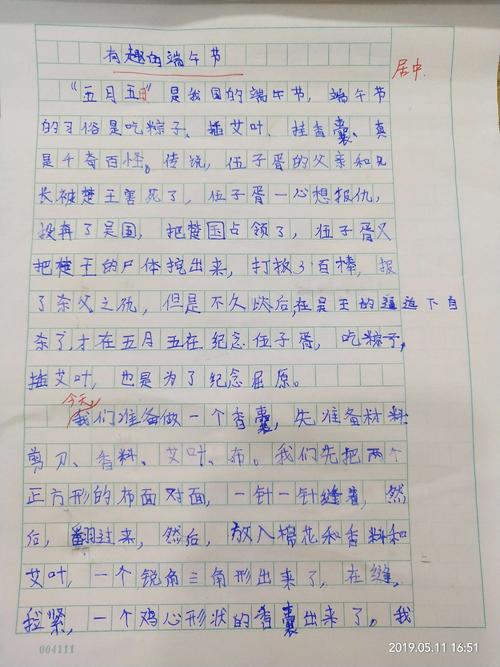 有趣的端午节
居中
"五月五日"是我国的端午节，端午节
的习俗是吃粽子、插艾叶、挂香囊、真
是千奇百怪。传说，伍子胥的父亲和兄
长被楚王害死了，伍子胥一心想报仇，
投奔了吴国，把楚国占领了，伍子胥又
把楚王的尸体挖出来，打扳3百棒，报
了杀父之仇，但是不久然后，在吴王的逼迫下自
杀了，才在五月五在纪念伍子胥，吃粽子，
插艾叶，也是为了纪念屈原。
今天，
我们准备做一个香囊，先准备材料
剪刀、香料、艾叶、布。我们先把两个
正方形的布面对面，一针一针缝着，然
后，翻过来，然后，放入棉花和香料和
艾叶，一个锐角三角形出来了，在缝，
拉紧，一个鸡心形状的香囊出来了。我
004111
2019.05.11 16:51